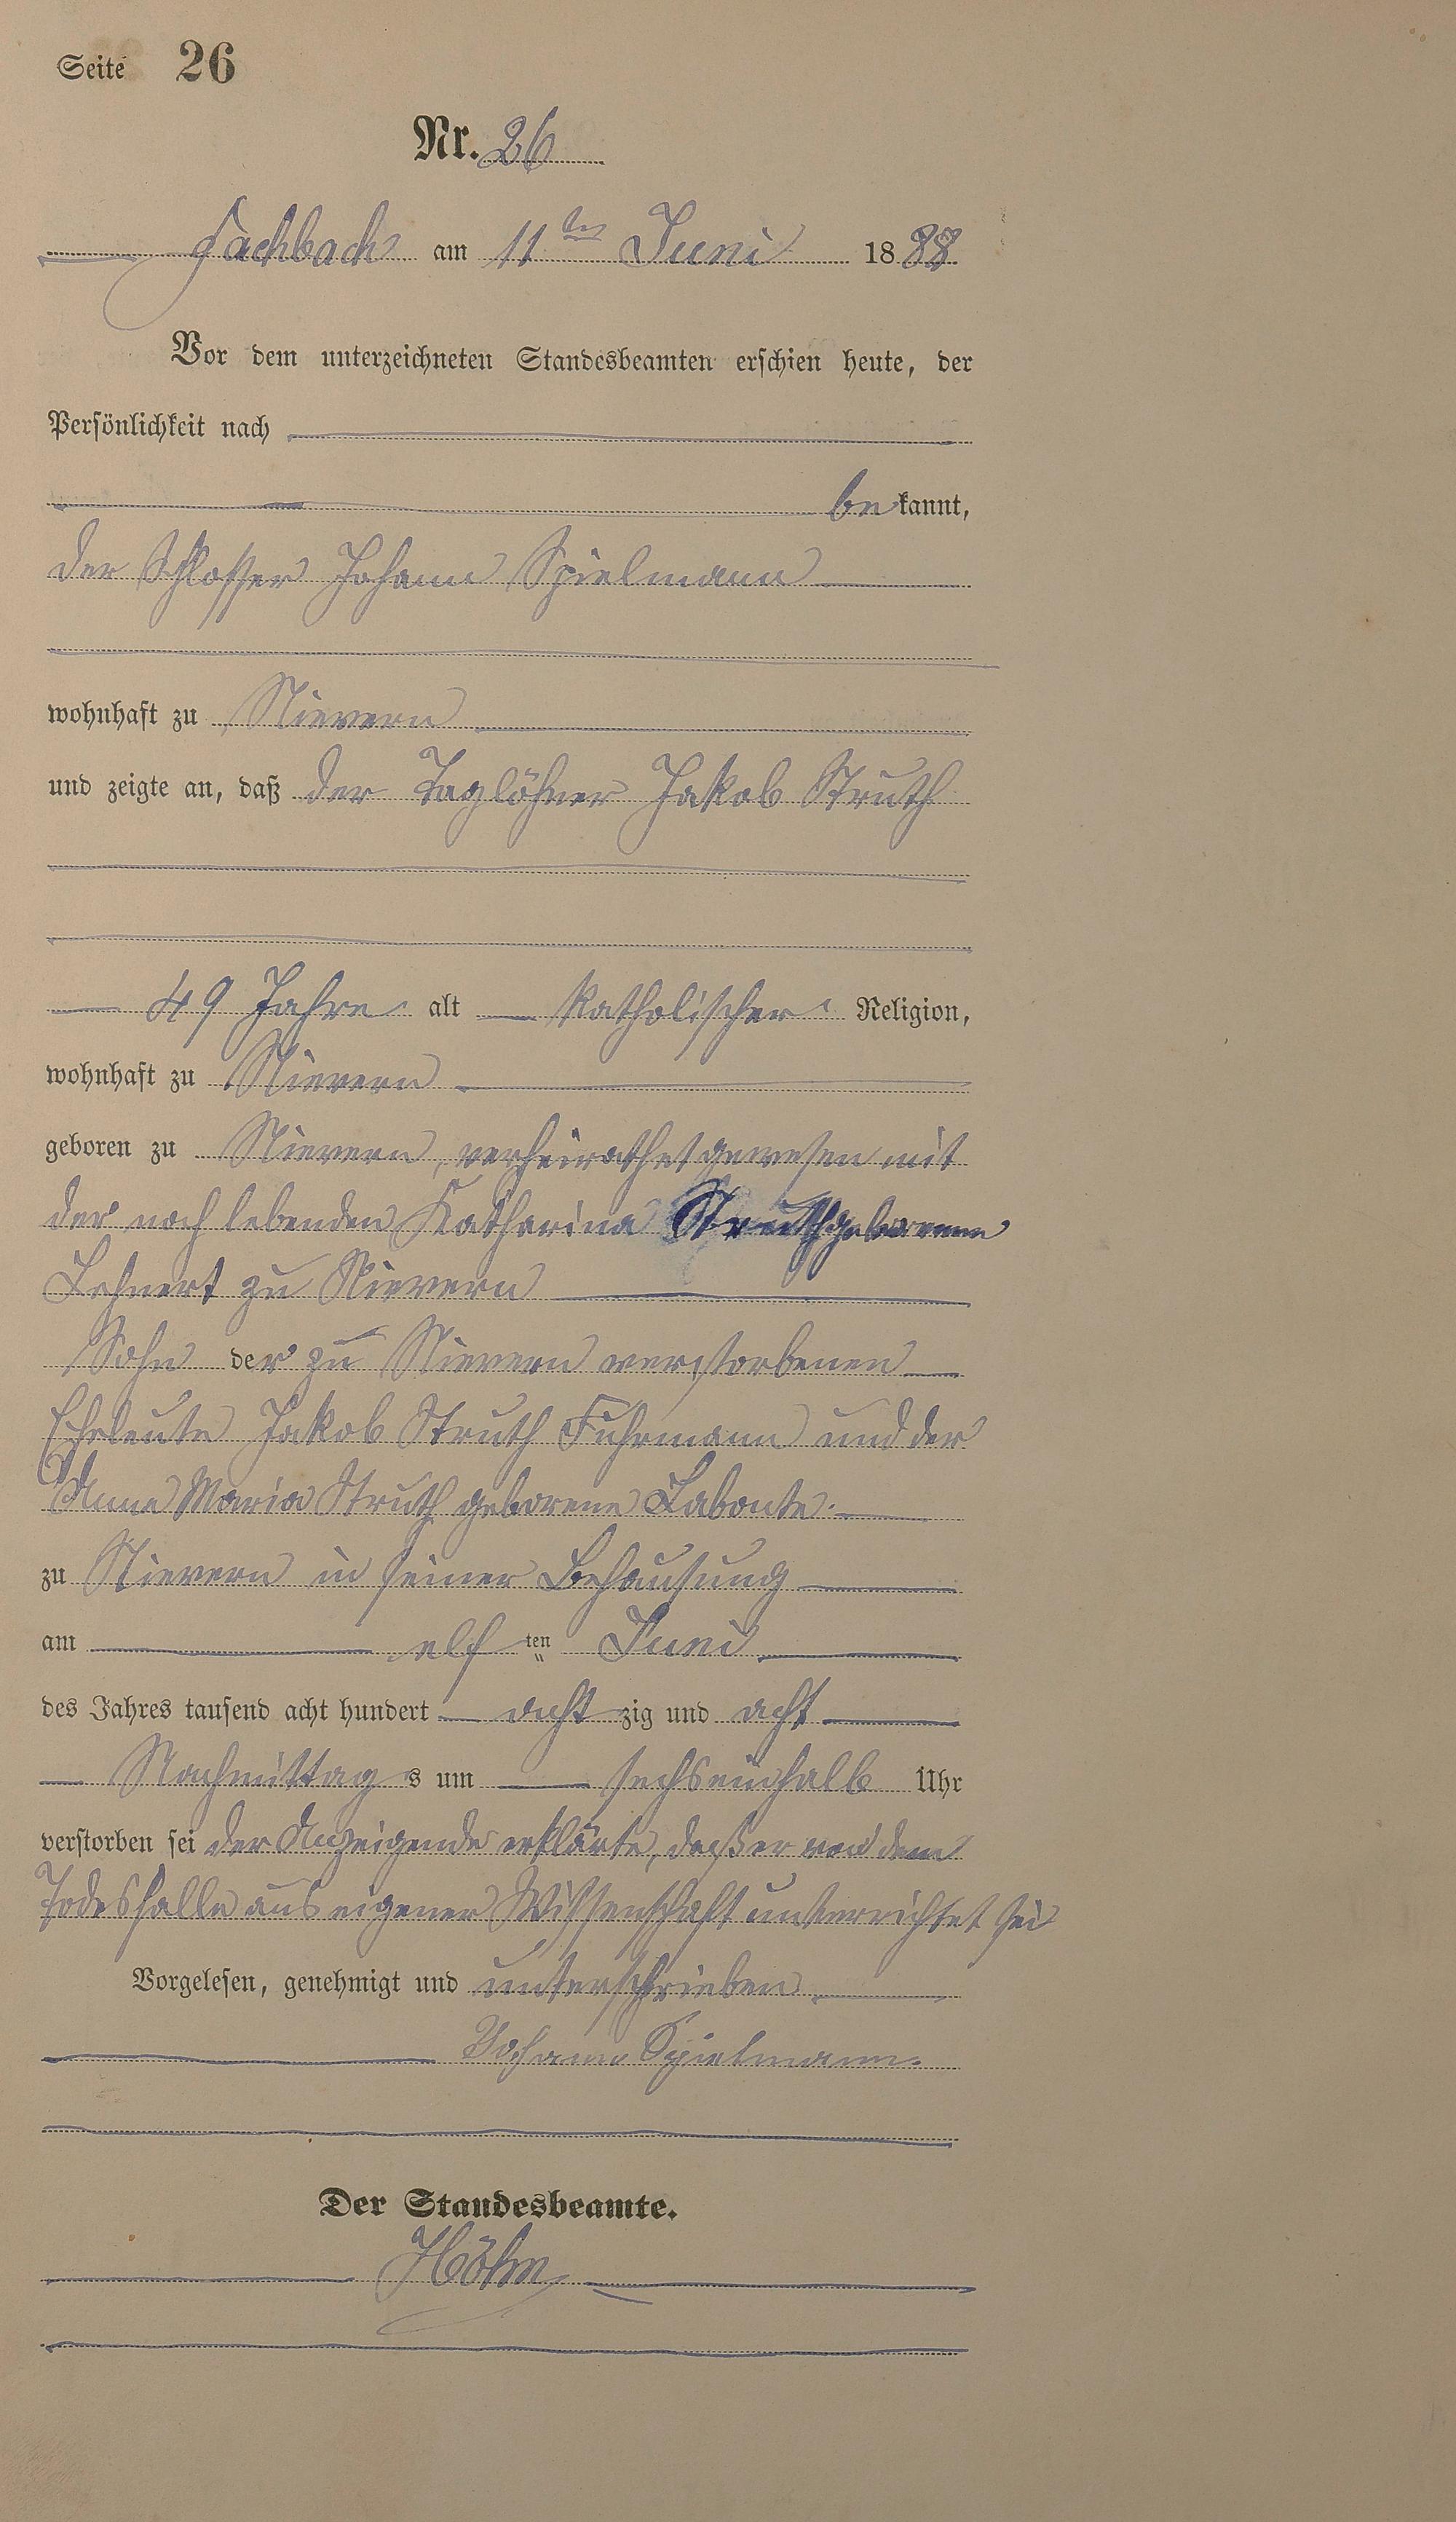 Seite 26
Nr. 26
Fachbach am 11ten Juni 1888
Vor dem unterzeichneten Standesbeamten erschien heute, der
Persönlichkeit nach
bekannt,
der Schlosser Johann Spielmann
wohnhaft zu Nievern
und zeigte an, daß der Taglöhner Jakob Struth
49 Jahre alt katholischer Religion,
wohnhaft zu Nievern
geboren zu Nievern, verheirathet gewesen mit
der noch lebenden Katharina Struth geborenen
Lehnert zu Nievern
Sohn der zu Nievern verstorbenen
Eheleute Jakob Struth Fuhrmann und der
Anna Maria Struth geborene Labonte.
zu Nievern in seiner Behausung
am elf ten Juni
des Jahres tausend acht hundert acht zig und acht
Nachmittag s um sechseinhalb Uhr
verstorben sei der Anzeigende erklärte, daß er von dem
Todesfalle aus eigener Wissenschaft unterrichtet sei
Vorgelesen, genehmigt und unterschrieben
Johann Spielmann.
Der Standesbeamte.